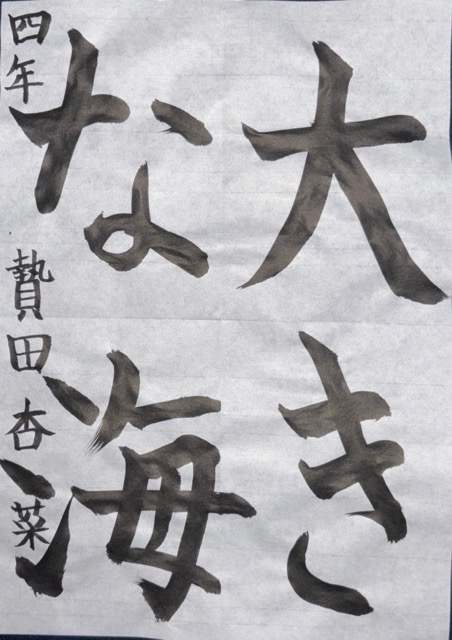 大き
な海
四年 贄田杏菜